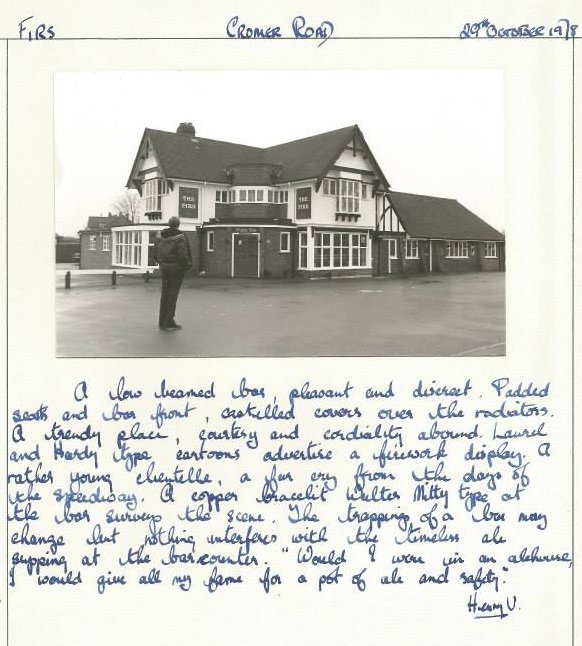 FIRS CROMER ROAD 29TH OCTOBER 1978
THE FIRS
THE FIRS
A low beamed bar, pleasant and discreet. Padded
seats and bar front, castelled covers over the radiators.
A trendy place, courtesy and cordiality abound. Laurel
and Hardy type cartoons advertise a firework display. A
rather young clientelle, a far cry from the days of
the speedway. A copper bracelit Walter Mitty type at
the bar surveys the scene. The trappings of a bar may
change but nothing interferes with the timeless ale
supping at the bar counter. "Would I were in an alehouse,
I would give all my fame for a pot of ale and safety."
Henry V.